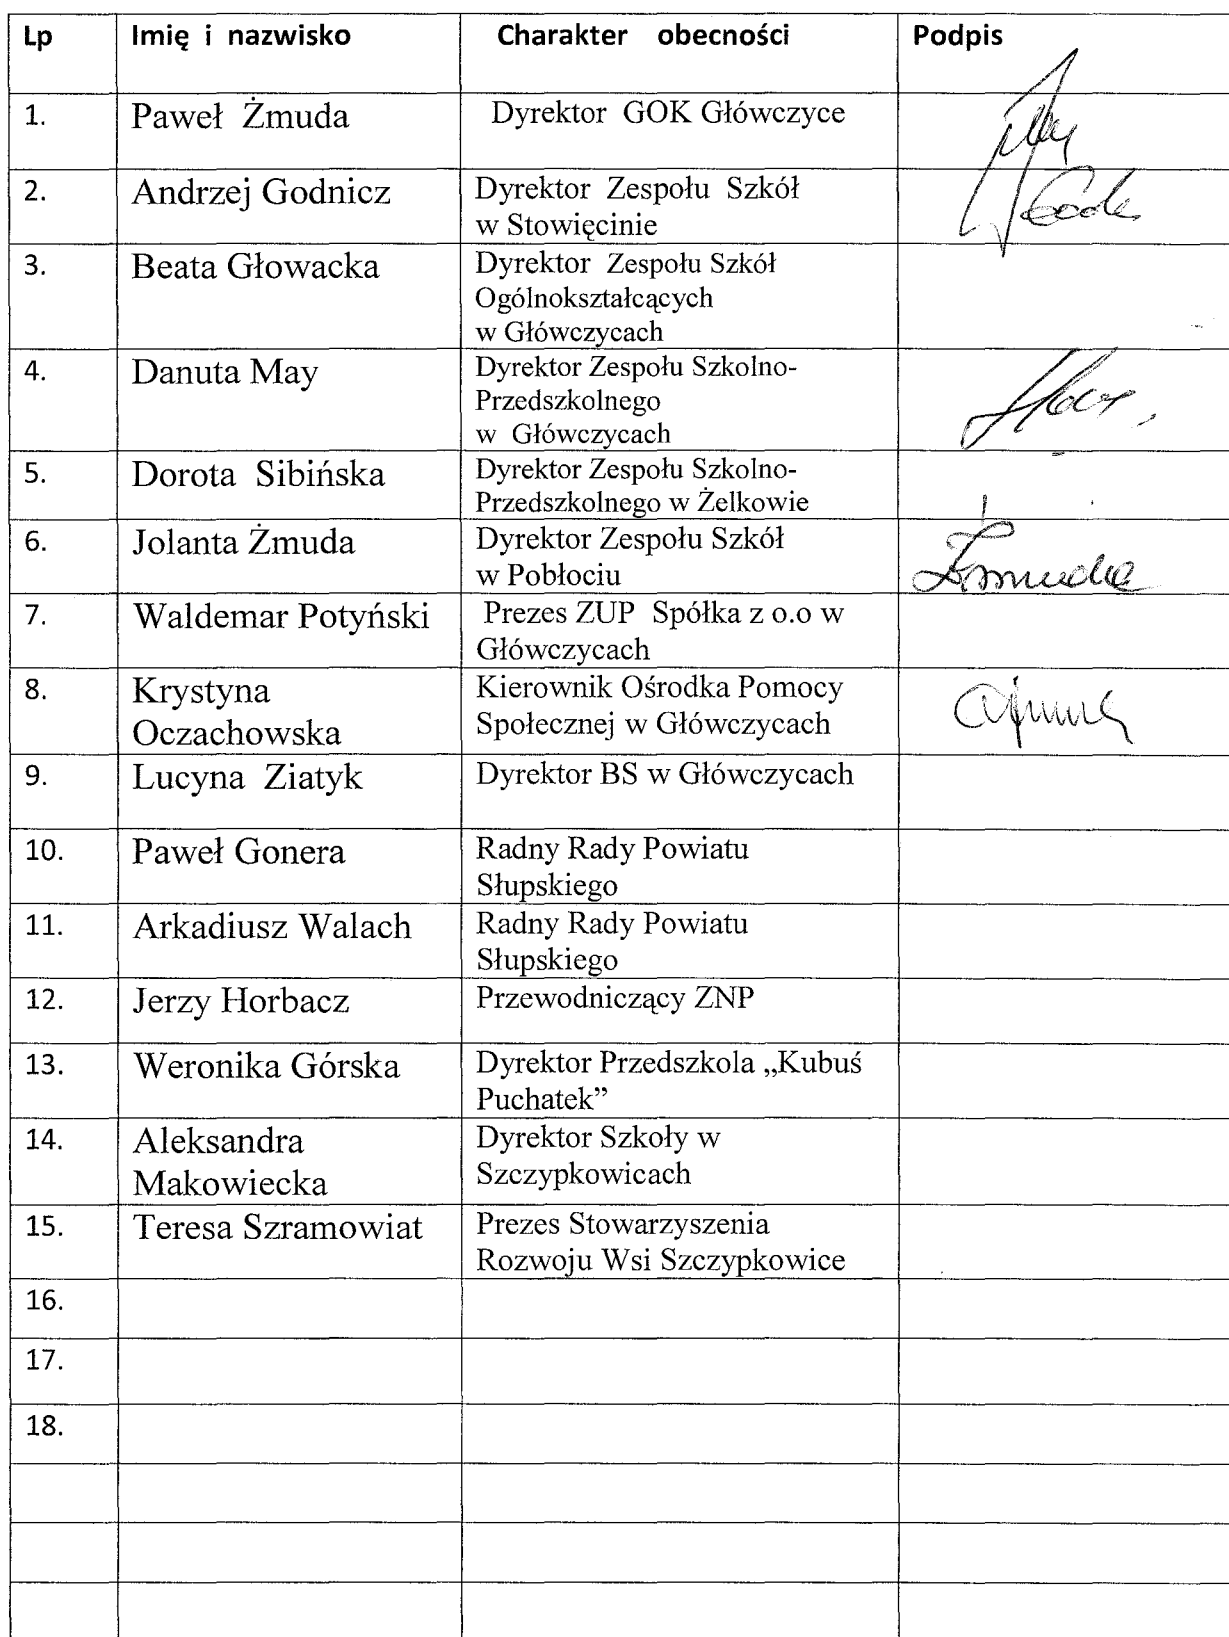 Lp Imię i nazwisko Charakter obecności Podpis
1. Paweł Żmuda Dyrektor GOK Główczyce
2. Andrzej Godnicz Dyrektor Zespołu Szkół
w Stowięcinie
3. Beata Głowacka Dyrektor Zespołu Szkół
Ogólnokształcących
w Główczycach
4. Danuta May Dyrektor Zespołu Szkolno-
Przedszkolnego
w Główczycach
5. Dorota Sibińska Dyrektor Zespołu Szkolno-
Przedszkolnego w Żelkowie
6. Jolanta Żmuda Dyrektor Zespołu Szkół Żmuda
w Pobłociu
7. Waldemar Potyński Prezes ZUP Spółka z o.o w
Główczycach
8. Krystyna Kierownik Ośrodka Pomocy
Oczachowska Społecznej w Główczycach
9. Lucyna Ziatyk Dyrektor BS w Główczycach
10. Paweł Gonera Radny Rady Powiatu
Słupskiego
11. Arkadiusz Walach Radny Rady Powiatu
Słupskiego
12. Jerzy Horbacz Przewodniczący ZNP
13. Weronika Górska Dyrektor Przedszkola „Kubuś
Puchatek”
14. Aleksandra Dyrektor Szkoły w
Makowiecka Szczypkowicach
15. Teresa Szramowiat Prezes Stowarzyszenia
Rozwoju Wsi Szczypkowice
16.
17.
18.